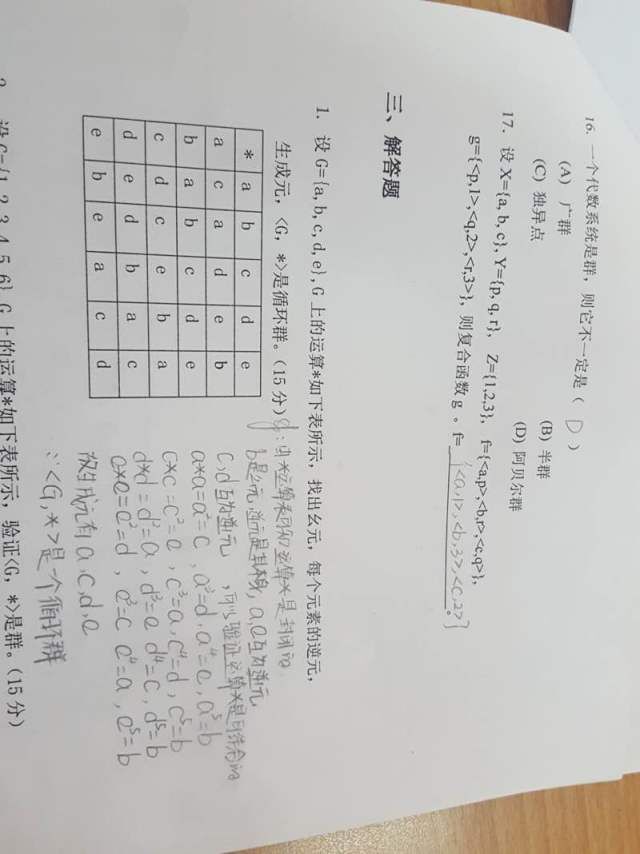 16. 一个代数系统是群，则它不一定是（ D ）
(A) 广群 (B) 半群
(C) 独异点 (D) 阿贝尔群
17. 设 X={a,b,c},Y={p,q,r}, Z={1,2,3}, f={<a,p>,<b,r>,<c,q>},
g={<p,1>,<q,2>,<r,3>}，则复合函数 g 。f= {<a,1>,<b,3>,<c,2>} 。
三、解答题
1. 设 G={a,b,c,d,e},G 上的运算*如下表所示，找出幺元，每个元素的逆元，
生成元，<G, *>是循环群。（15 分）
* a b c d e
a c a d e b
b a b c d e
c d c e b a
d e d b a c
e b e a c d
:由*运算表可知运算*是封闭的.
b是幺元,逆元是其本身, a,e互为逆元
c,d互为逆元 ,可以验证运算*是可结合的
a*a=a²=c, a³=d, a⁴=e, a⁵=b
c*c=c²=e, c³=a, c⁴=d, c⁵=b
d*d=d²=a, d³=e d⁴=c, d⁵=b
e*e=e²=d, e³=c e⁴=a, e⁵=b
故生成元有a,c,d,e
∴<G,*>是一个循环群
2. 设 G={1,2,3,4,5,6},G 上的运算*如下表所示，验证<G, *>是群。（15 分）